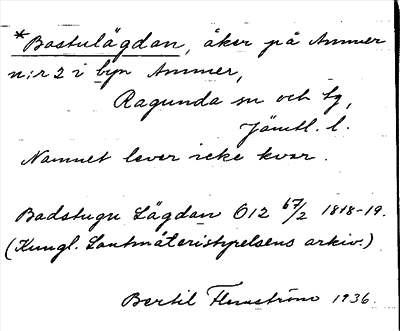 *Bastulägdan, åker på Ammer
n:r 2 i byn Ammer,
Ragunda sn och tg,
Jämtl. l.
Namnet lever icke kvar.
Badstugu Lägdan O12 67/2 1818-19.
(Kungl. Lantmäteristyrelsens arkiv.)
Bertil Flemström 1936.